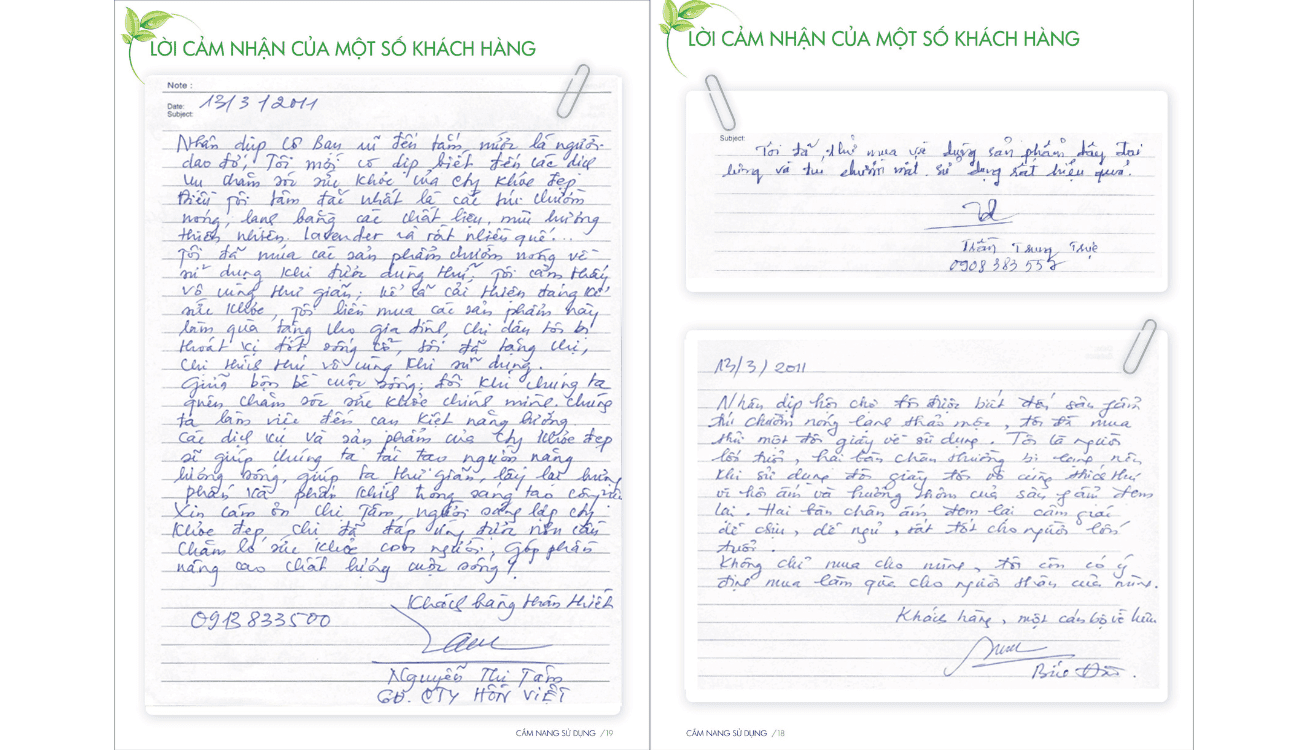 LỜI CẢM NHẬN CỦA MỘT SỐ KHÁCH HÀNG
Note :
Date: 13/3/2011
Subject:
Nhân dịp cô bạn đến tắm, mức là người
dao đỏ, Tôi mới có dịp biết đến các dịch
vụ chăm sóc sức khỏe của Cty Khỏe Đẹp
Điều tôi tâm đắc nhất là các túi chườm
nóng, lạnh bằng các chất liệu, mùi hương
thiên nhiên. lavender và rất nhiều quế...
Tôi đã mua các sản phẩm chườm nóng về
sử dụng khi được dùng thử, Tôi cảm thấy
vô cùng thư giãn, kể cả cải thiện đáng kể
sức khỏe, Tôi liền mua các sản phẩm này
làm quà tặng cho gia đình, chị dâu tôi bị
thoát vị đốt sống cổ, tôi đã tặng chị,
chị thích thú vô cùng khi sử dụng.
Giữa bộn bề cuộc sống, đôi khi chúng ta
quên chăm sóc sức khỏe chính mình. chúng
ta làm việc đến cạn kiệt năng lượng.
Các dịch vụ và sản phẩm của Cty Khỏe đẹp
sẽ giúp chúng ta tái tạo nguồn năng
lượng sống, giúp ta thư giãn, lấy lại hưng
phấn và phấn khích trong sáng tạo công việc
Xin cám ơn chị Tâm, người sáng lập cty
Khỏe đẹp, chị đã đáp ứng được nhu cầu
chăm lo sức khỏe con người, góp phần
nâng cao chất lượng cuộc sống!
Khách hàng thân thiết
0913833500
Nguyễn Thị Tám
GĐ. CTY HỒN VIỆT
CẨM NANG SỬ DỤNG /19
LỜI CẢM NHẬN CỦA MỘT SỐ KHÁCH HÀNG
Subject:
Tôi đã thử mua và dụng sản phẩm dây đai
lưng và túi chườm mát. sử dụng rất hiệu quả.
Trần Trung Trực
0908 383 557
13/3/2011
Nhân dịp hội chợ tôi được biết đến sản phẩm
túi chườm nóng lạnh thảo mộc, tôi đã mua
thử một đôi giầy về sử dụng. Tôi là người
lớn tuổi, hai bàn chân thường bị lạnh nên
khi sử dụng đôi giầy tôi vô cùng thích thú
vì hơi ấm và hương thơm của sản phẩm đem
lại. Hai bàn chân ấm đem lại cảm giác
dễ chịu, dễ ngủ, rất tốt cho người lớn
tuổi.
Không chỉ mua cho mình, tôi còn có ý
định mua làm quà cho người thân của mình.
Khách hàng, một cán bộ về hưu
CẨM NANG SỬ DỤNG /18